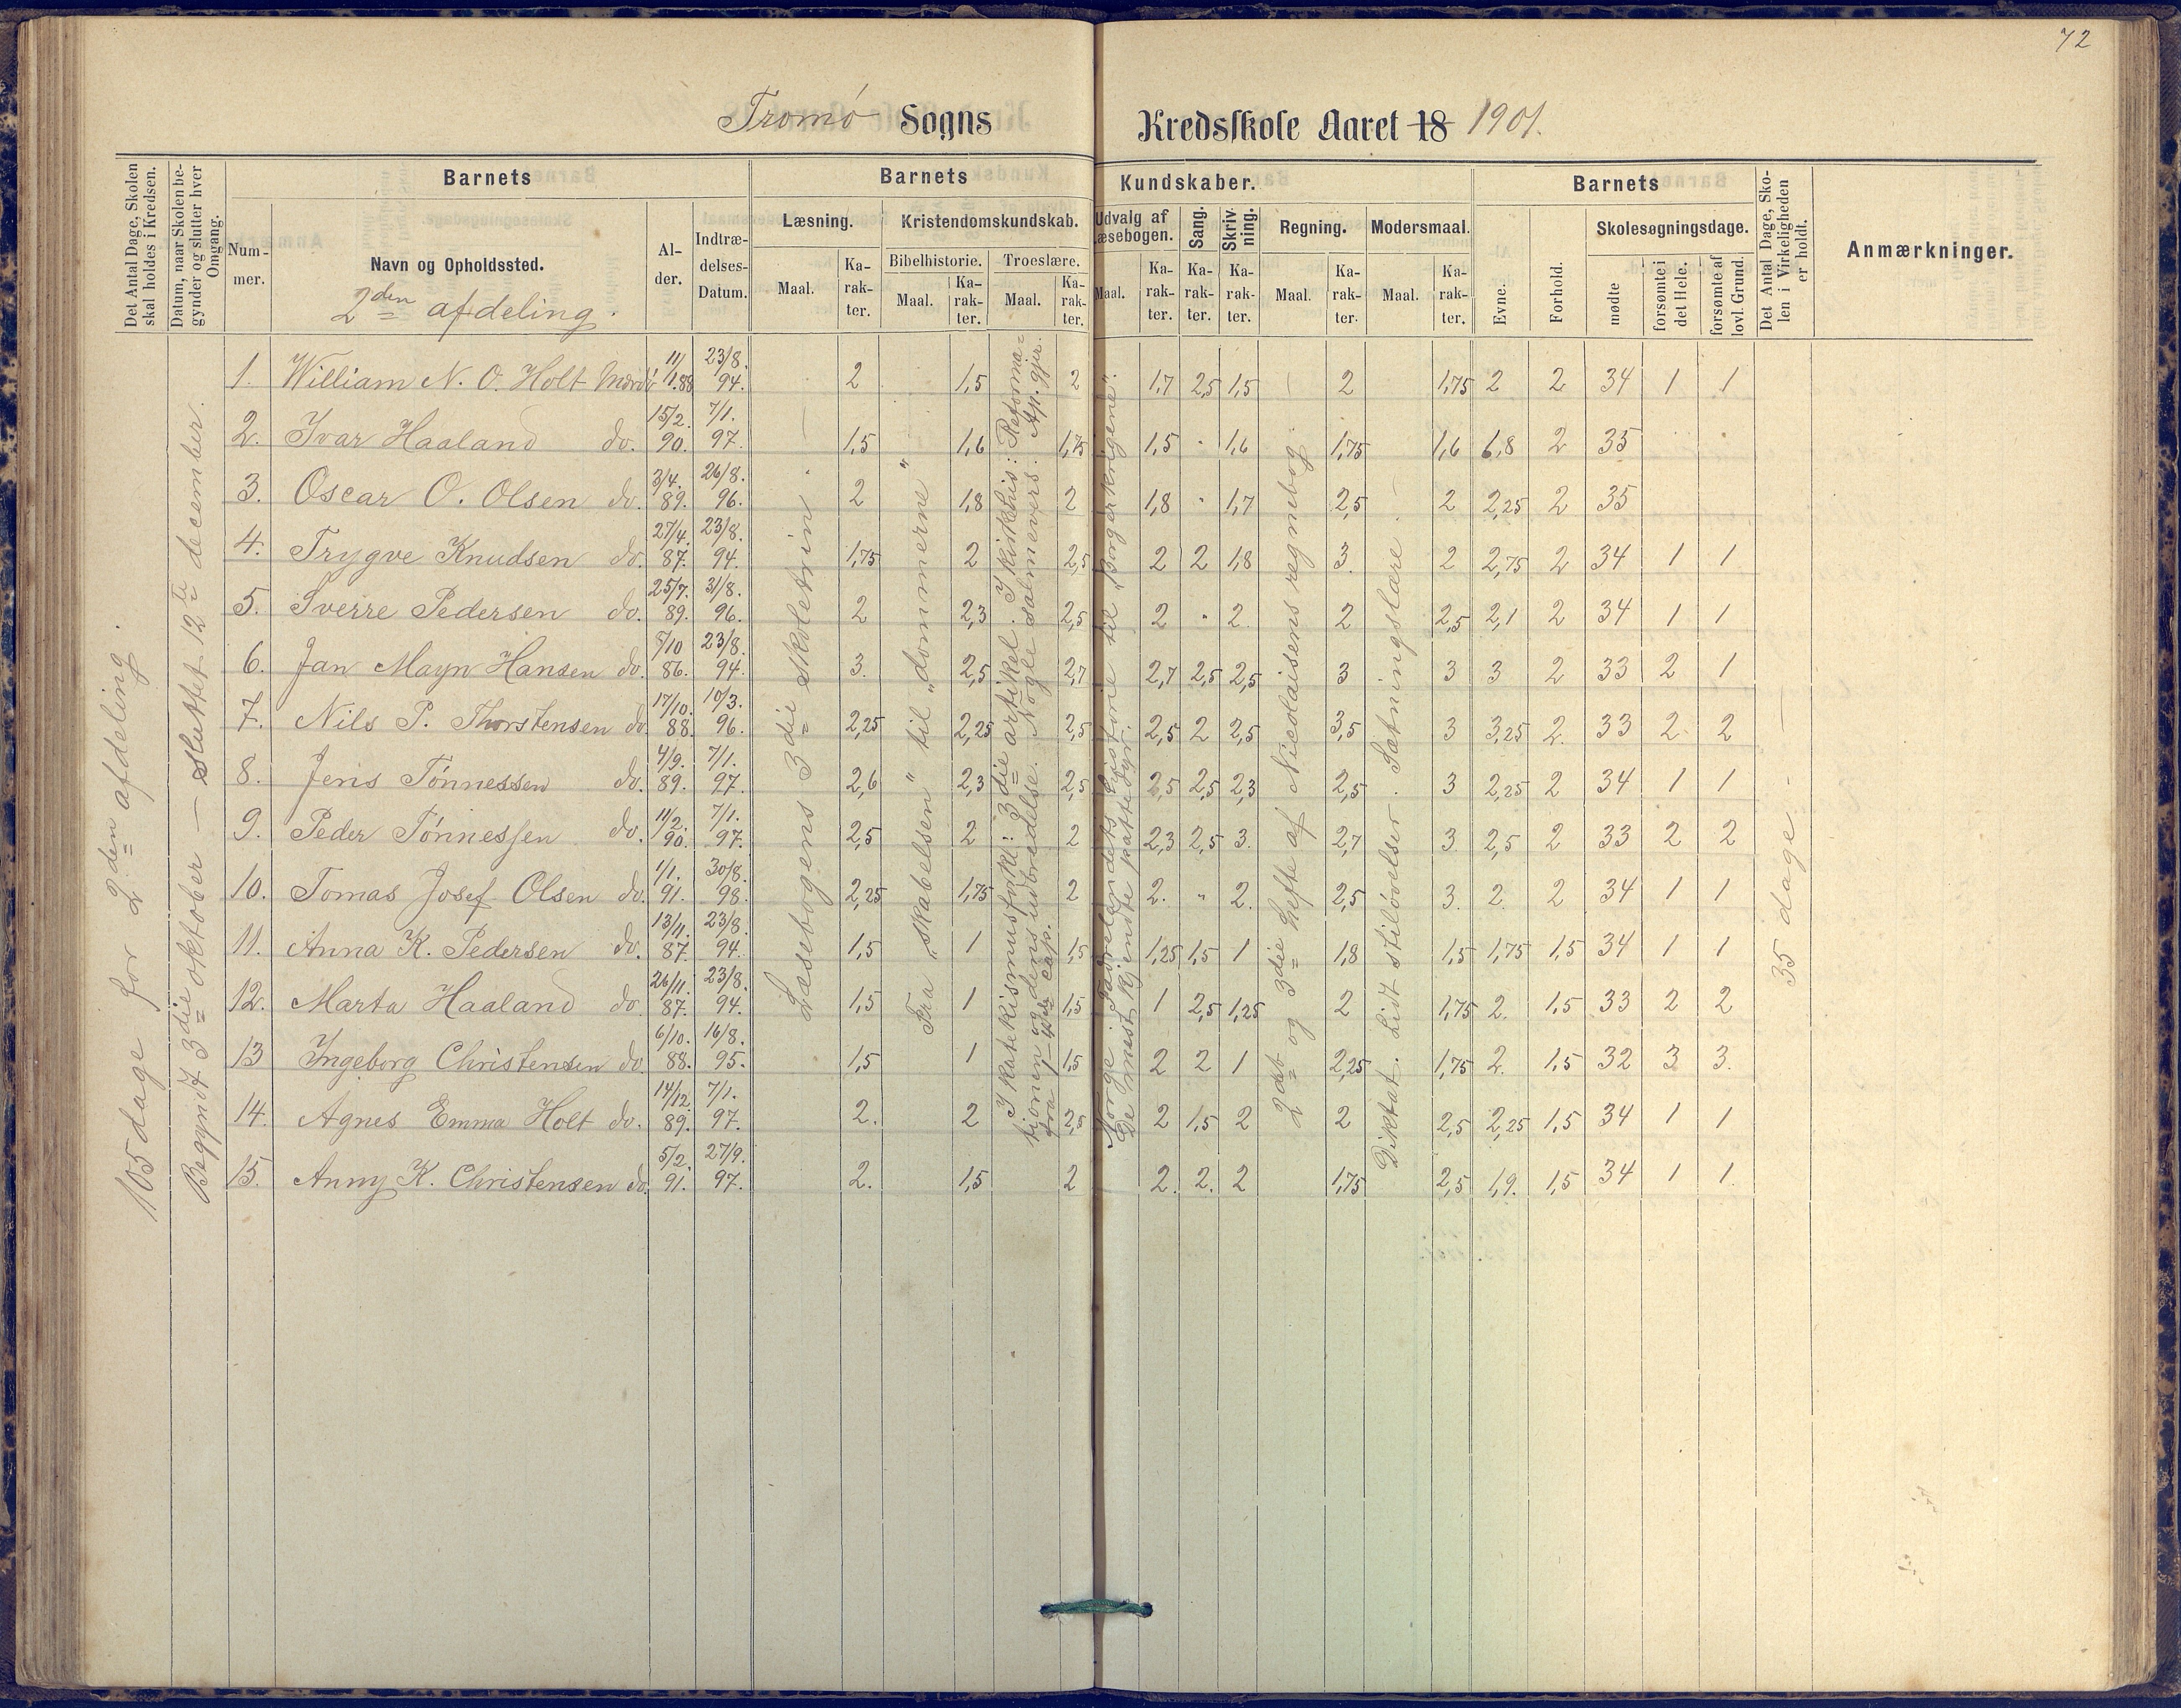 72
Tromø Sogns Kredsskole Aaret 18 1901.
Det Antal Dage, Skolen skal holdes i Kredsen.
Datum, naar Skolen begynder og slutter hver Omgang.
Barnets
Nummer.
Navn og Opholdssted.
2den afdeling.
Alder.
Indtrædelses-Datum.
Barnets Kundskaber.
Læsning.
Maal.
Karakter.
Kristendomskundskab.
Bibelhistorie.
Maal.
Karakter.
Troeslære.
Maal.
Karakter.
Udvalg af Læsebogen.
Maal.
Karakter.
Sang.
Karakter.
Skrivning.
Karakter.
Regning.
Maal.
Karakter.
Modersmaal.
Maal.
Karakter.
Barnets
Evne.
Forhold.
Skolesøgningsdage.
mødte
forsømte i det Hele.
forsømte af lovl. Grund.
Det Antal Dage, Skolen i Virkeligheden er holdt.
Anmærkninger.
105 dage for 2den afdeling.
Begyndt 3die oktober — Sluttet 12te december.
Læsebogens 3die skoletrin
Fra "skabelsen" til "dommerne"
I katekismusfork.: 3die artikel. I kirkehis: Reformationen og dens udbredelse. Nogle salmevers. Ap. gjer. fra 1—4de cap.
Norge. Fædrelandets historie til "Borgerkrigene". De mest kjendte pattedyr.
2det og 3die hefte af Nicolaisens regnebog.
Diktat. Lidt stiløvelser. Sætningslære.
35 dage.
1. William N. O. Holt 11/1.88 23/8.94. 2 1,5 2 1,7 2,5 1,5 2 1,75 2 2 34 1 1
2. Ivar Haaland do. 15/2.90. 7/1.97. 1,5 1,6 1,75 1,5 " 1,6 1,75 1,6 1,8 2 35
3. Oscar O. Olsen do. 3/4.89. 26/8.96. 2 1,8 2 1,8 " 1,7 2,5 2 2,25 2 35
4. Trygve Knudsen do. 27/4.87. 23/8.94. 1,75 2 2,5 2 2 1,8 3. 2 2,75 2 34 1 1
5. Sverre Pedersen do. 25/7.89. 31/8.96. 2 2,3 2,5 2 " 2. 2 2,5 2,1 2 34 1 1
6. Jan Mayn Hansen do. 5/10 86. 23/8.94. 3. 2,5 2,7 2,7 2,5 2,5 3 3 3 2 33 2 1
7. Nils P. Thorstensen do. 17/10.88. 10/3.96. 2,25 2,25 2,5 2,5 2 2,5 3,5 3 3,25 2. 33 2 2
8. Jens Tønnessen do. 4/9.89. 7/1.97. 2,6 2,3 2,5 2,5 2,5 2,3 2,5 3 2,25 2 34 1 1
9. Peder Tønnessen do. 11/2.90. 7/1.97. 2,5 2 2 2,3 2,5 3. 2,7 3 2,5 2 33 2 2
10. Tomas Josef Olsen do. 1/1.91. 30/8.98. 2,25 1,75 2 2. " 2. 2,5 3. 2. 2 34 1 1
11. Anna K. Pedersen do. 13/11.87. 23/8.94. 1,5 1 1,5 1,25 1,5 1 1,8 1,5 1,75 1,5 34 1 1
12. Marta Haaland do. 26/11.87. 23/8.94. 1,5 1 1,5 1 2,5 1,25 2 1,75 2. 1,5 33 2 2
13 Ingeborg Christensen do. 6/10.88. 16/8.95. 1,5 1 1,5 2 2 1 2,25 1,75 2. 1,5 32 3 3.
14. Agnes Emma Holt do. 14/12.89. 7/1.97. 2. 2 2,5 2 1,5 2 2 2,5 2,25 1,5 34 1 1
15. Anny K. Christensen do. 5/2.91. 27/9.97. 2. 1,5 2 2. 2. 2 1,75 2,5 1,9. 1,5 34 1 1.